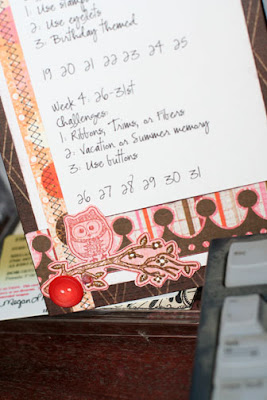 1: Use stamps
2: Use eyelets
3: Birthday themed
19 20 21 22 23 24 25
Week 4: 26-31st
Challenges:
1: Ribbons, Trims, or Fibers
2: Vacation or Summer memory
3: Use buttons
26 27 28 29 30 31